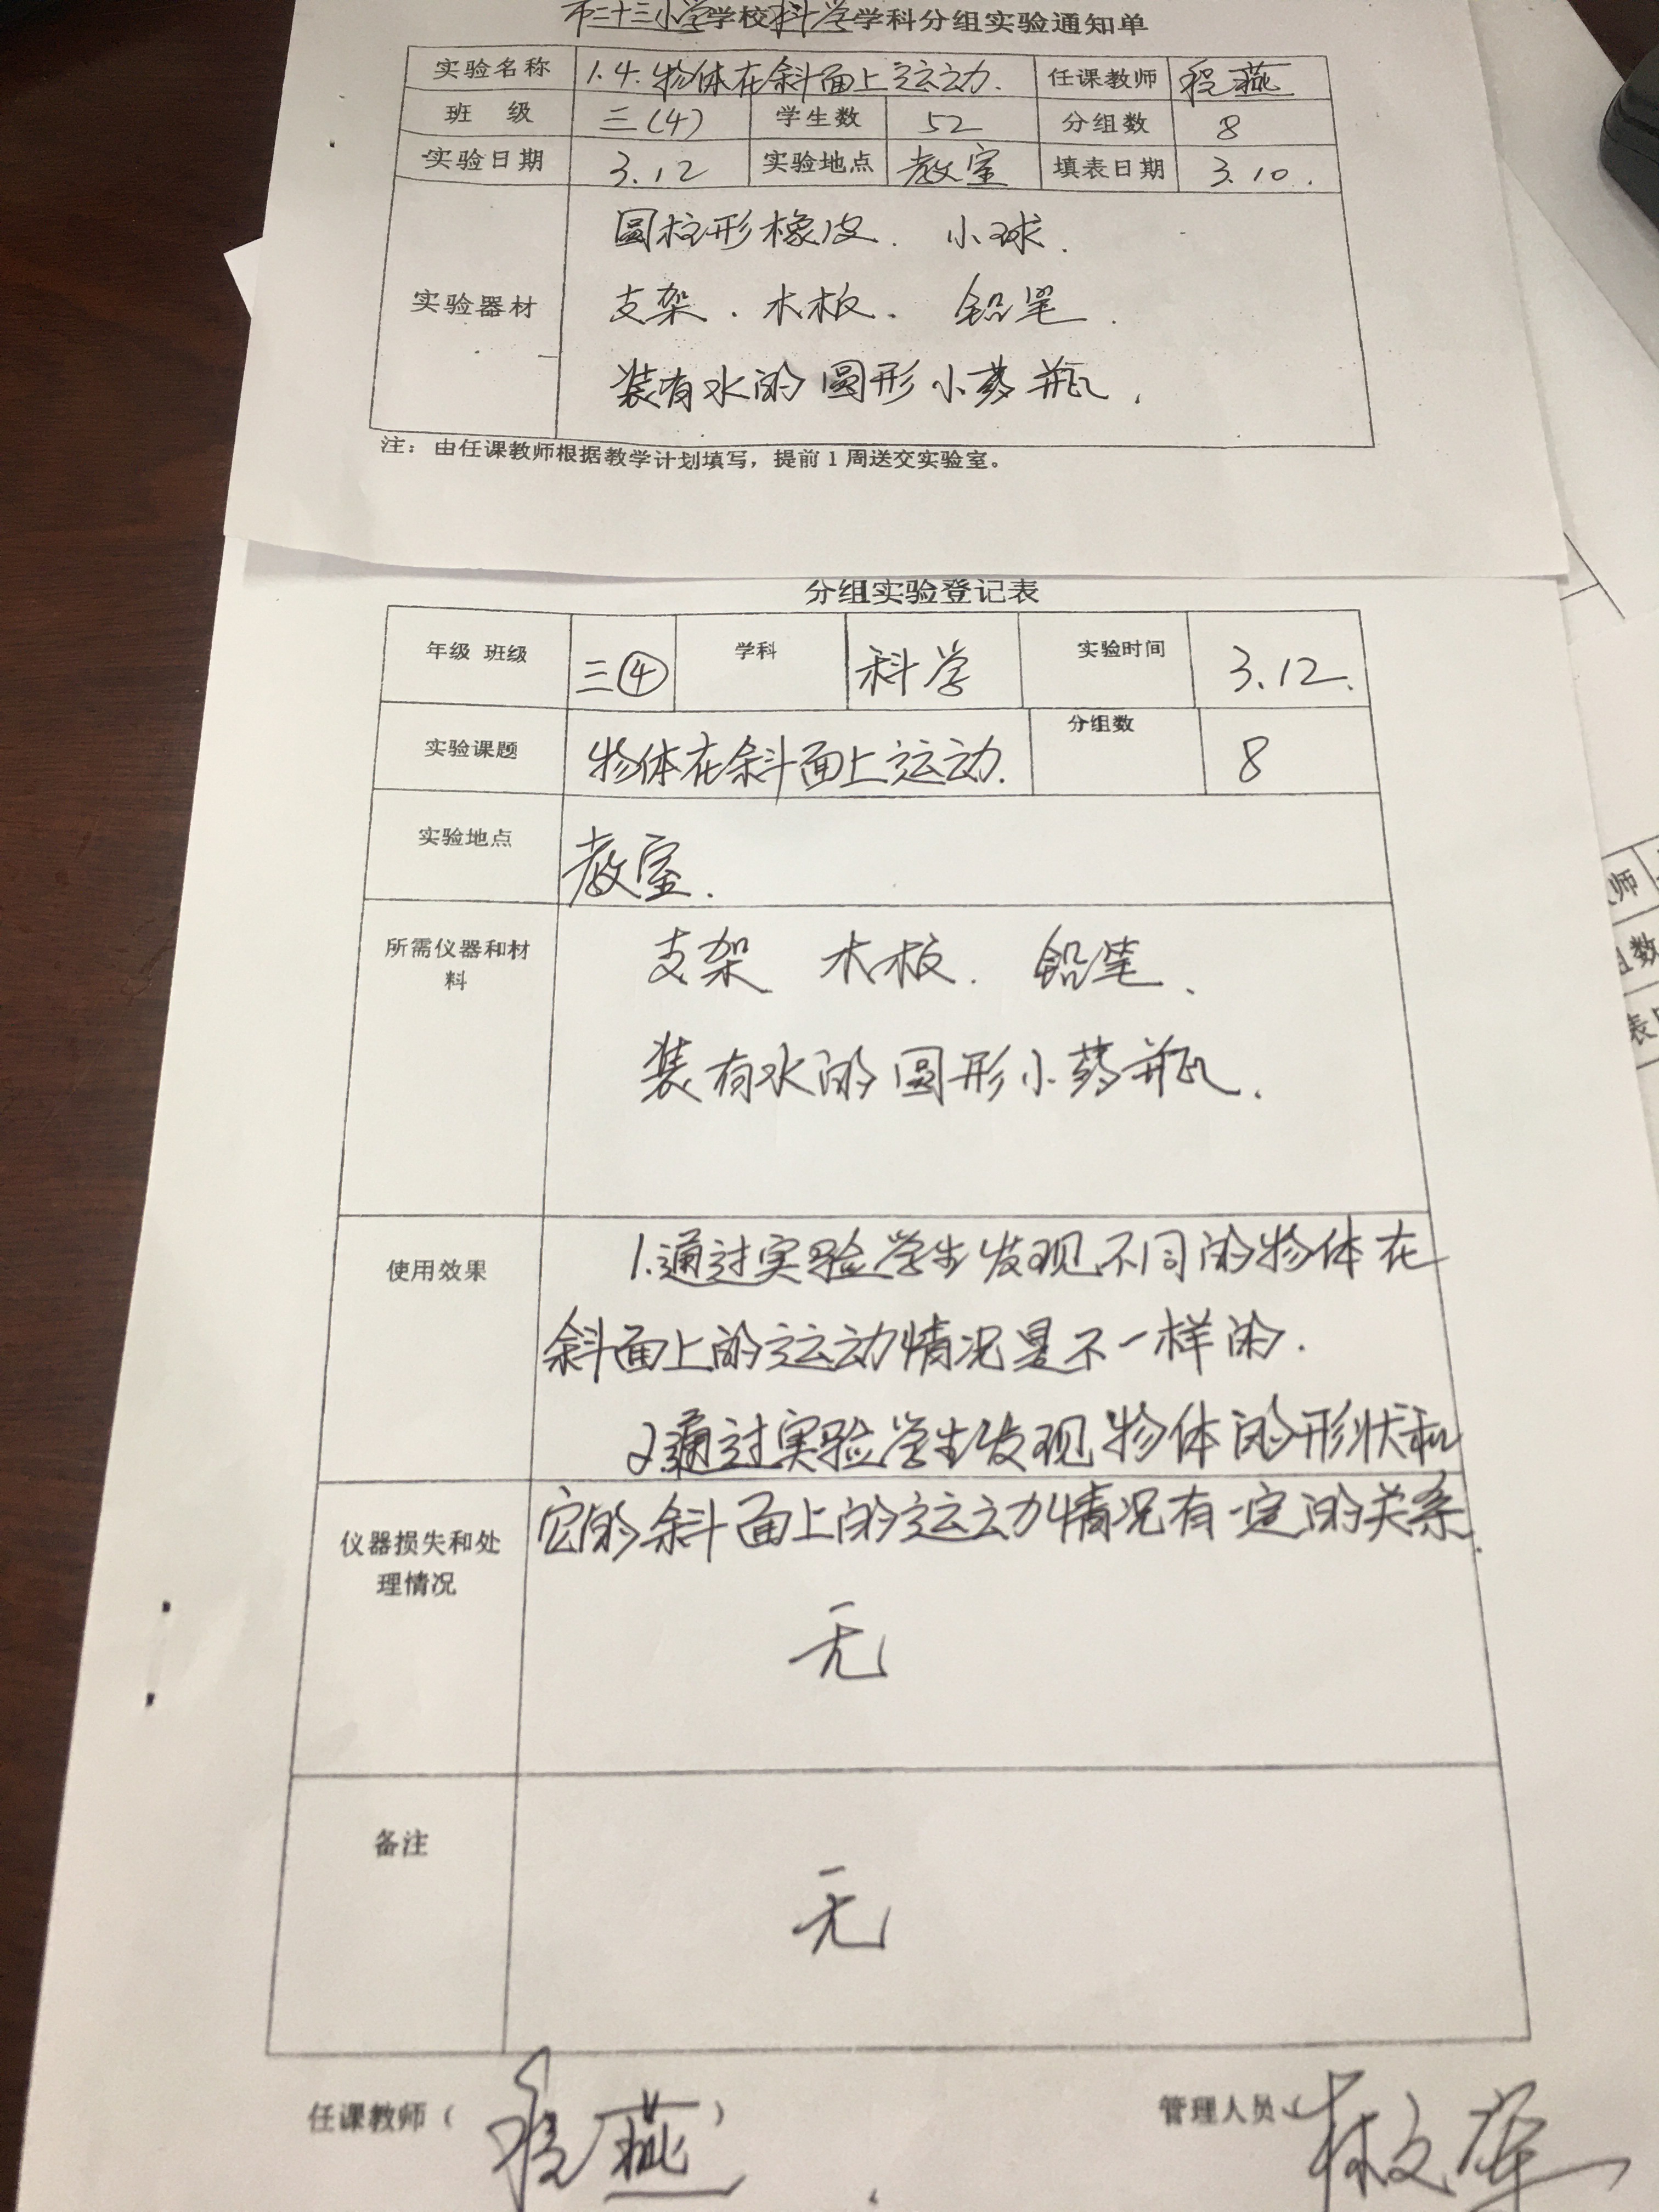 市二十三小学学校科学学科分组实验通知单
实验名称 1.4.物体在斜面上运动. 任课教师 程燕
班 级 三(4) 学生数 52 分组数 8
实验日期 3.12 实验地点 教室 填表日期 3.10.
圆柱形橡皮. 小球.
实验器材 支架.木板. 铅笔.
装有水的圆形小药瓶.
注：由任课教师根据教学计划填写，提前1周送交实验室。
分组实验登记表
年级 班级 三④ 学科 科学 实验时间 3.12.
实验课题 物体在斜面上运动. 分组数 8
实验地点 教室.
所需仪器和材 支架 木板. 铅笔、
料
装有水的圆形小药瓶.
使用效果 1.通过实验学生发现不同的物体在
斜面上的运动情况是不一样的.
2通过实验学生发现物体的形状和
它的斜面上的运动情况有一定的关系.
仪器损失和处
理情况
无
备注
无
任课教师（程燕）
管理人员（
师
数
表